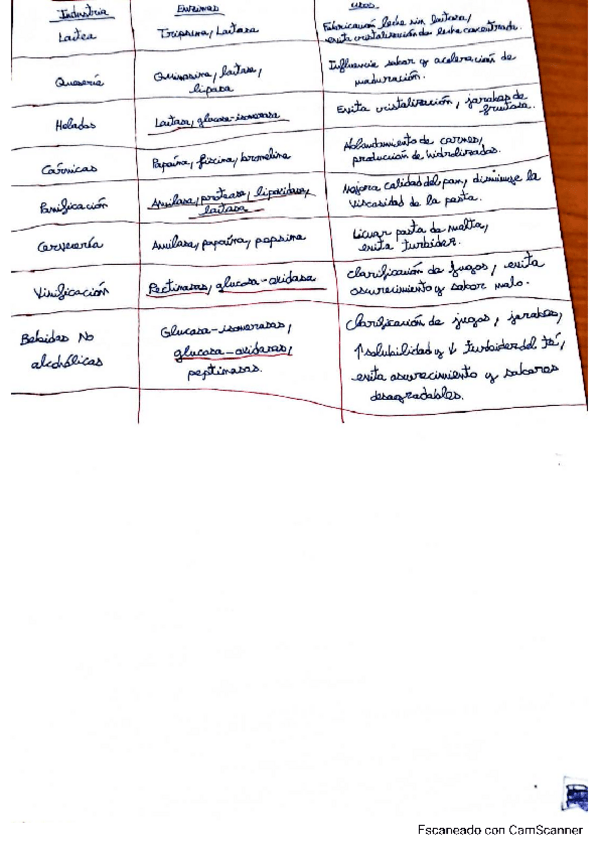 Industria Enzimas usos
Lactea Tripsina, Lactasa Fabricación leche sin lactosa,
evita cristalización de leche concentrada.
Quesería Quimosina, lactasa, Influencia sabor y aceleración de
lipasa maduración.
Helados Lactasa, glucosa-isomerasa Evita cristalización, jarabes de
fructosa.
Cárnicas Papaína, ficcina, bromelina Ablandamiento de carnes,
producción de hidrolizados.
Panificación Amilasa, proteasa, lipoxidasa, Mejora calidad del pan, disminuye la
lactasa viscosidad de la pasta.
Cervecería Amilasa, papaína, pepsina Licuar pasta de malta,
evita turbidez.
Vinificación Pectinasas, glucosa-oxidasa Clarificación de jugos, evita
oscurecimiento y sabor malo.
Bebidas No Glucosa-isomerasas, Clarificación de jugos, jarabes,
alcohólicas glucosa-oxidasas, ↑solubilidad y ↓ turbidez del té,
peptinasas. evita oscurecimiento y sabores
desagradables.
Escaneado con CamScanner